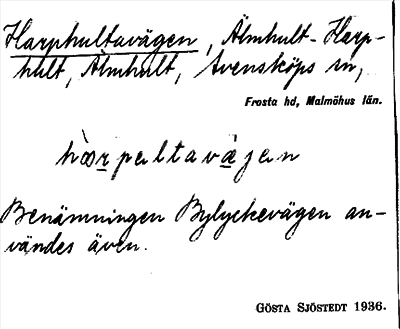 Harphultavägen, Älmhult-Harp-
hult, Älmhult, Svensköps sn,
Frosta hd, Malmöhus län.
hàrpaltavä̀jan
Benämningen Bylyckevägen an-
vändes även.
GÖSTA SJÖSTEDT 1936.